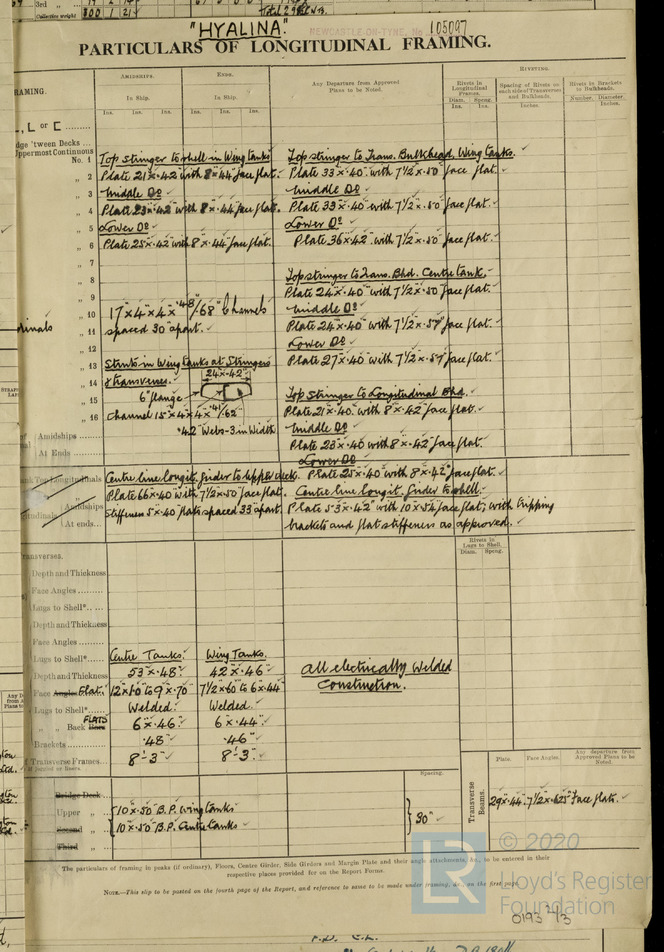 3rd „
Collective weight
"HYALINA."
NEWCASTLE-ON-TYNE. No. 105097
PARTICULARS OF LONGITUDINAL FRAMING.
FRAMING.
AMIDSHIPS.
ENDS.
Any Departure from Approved
Plans to be Noted.
RIVETING.
In Ship.
In Ship.
Rivets in
Longitudinal
Frames.
Spacing of Rivets on
each side of Transverses
and Bulkheads.
Rivets to Brackets
to Bulkheads.
Diam. Spcng.
Number. Diameter.
Ins. Ins. Ins. Ins. Ins. Ins.
Ins. Ins.
Inches.
Inches.
L or C
'tween Decks
Uppermost Continuous
No. 1 Top stringer to shell in Wing tanks Top stringer to Trans. Bulkhead, Wing tanks.
„ 2 Plate 21 x .42 with 8 x .44 face flat. Plate 33 x .40 with 7 1/2 x .50 face flat.
„ 3 Middle Do Middle Do
„ 4 Plate 23 x .42 with 8 x .44 face flat. Plate 33 x .40 with 7 1/2 x .50 face flat.
„ 5 Lower Do Lower Do
„ 6 Plate 25 x .42 with 8 x .44 face flat. Plate 36 x .42 with 7 1/2 x .50 face flat.
„ 7
„ 8 Top stringer to Trans. Bhd. Centre tank.
„ 9 Plate 24 x .40 with 7 1/2 x .50 face flat.
„ 10 17 x 4 x 4 x .48/.68 Channels Middle Do
„ 11 spaced 30" apart. Plate 24 x .40 with 7 1/2 x .57 face flat.
„ 12 Lower Do
„ 13 Struts in Wing tanks at Stringers Plate 27 x .40 with 7 1/2 x .57 face flat.
„ 14 & transverses. 24 x .42
„ 15 6" flange Top Stringer to Longitudinal Bhd.
„ 16 Channel 15 x 4 x 4 x .41/.62 Plate 21 x .40 with 8 x .42 face flat.
.42 Webs - 3 in Width Middle Do
Amidships
At Ends
Plate 23 x .40 with 8 x .42 face flat.
Lower Do
Centre line longit. girder to upper deck. Plate 25 x .40 with 8 x .42 face flat.
Plate 66 x .40 with 7 1/2 x .50 face flat. Centre line longit. girder to shell.
Amidships
At ends
Stiffeners 5 x .40 flats spaced 33" apart. Plate 53 x .42 with 10 x .54 face flat, with tripping
brackets and flat stiffeners as approved.
Rivets in
Lugs to Shell.
Diam. Spcng.
Transverses.
Depth and Thickness
Face Angles
Lugs to Shell*
Depth and Thickness
Face Angles
Lugs to Shell* Centre Tanks. Wing Tanks.
Depth and Thickness 53 x .48 42 x .46 All electrically Welded
Face Angles Flat. 12 x .60 to 9 x .70 7 1/2 x .60 to 6 x .44 Construction.
Lugs to Shell* Welded. Welded.
„ „ Back FLATS 6 x .46 6 x .44
Brackets .48 .46
Transverse Frames. 8'-3" 8'-3"
Spacing.
Bridge Deck
Upper „ 10 x .50 B.P. Wing tanks
Second „ 10 x .50 B.P. Centre tanks 30"
Third „
Transverse
Beams.
Plate. Face Angles.
Any departure from
Approved Plans to be
Noted.
29 x .44 7 1/2 x .625 Face flat.
The particulars of framing in peaks (if ordinary), Floors, Centre Girder, Side Girders and Margin Plate and their angle attachments, &c., to be entered in their
respective places provided for on the Report Forms.
NOTE.—This slip to be posted on the fourth page of the Report, and reference to same to be made under framing, &c., on the first page.
© 2020
LR
Lloyd's Register
Foundation
0193 2/3